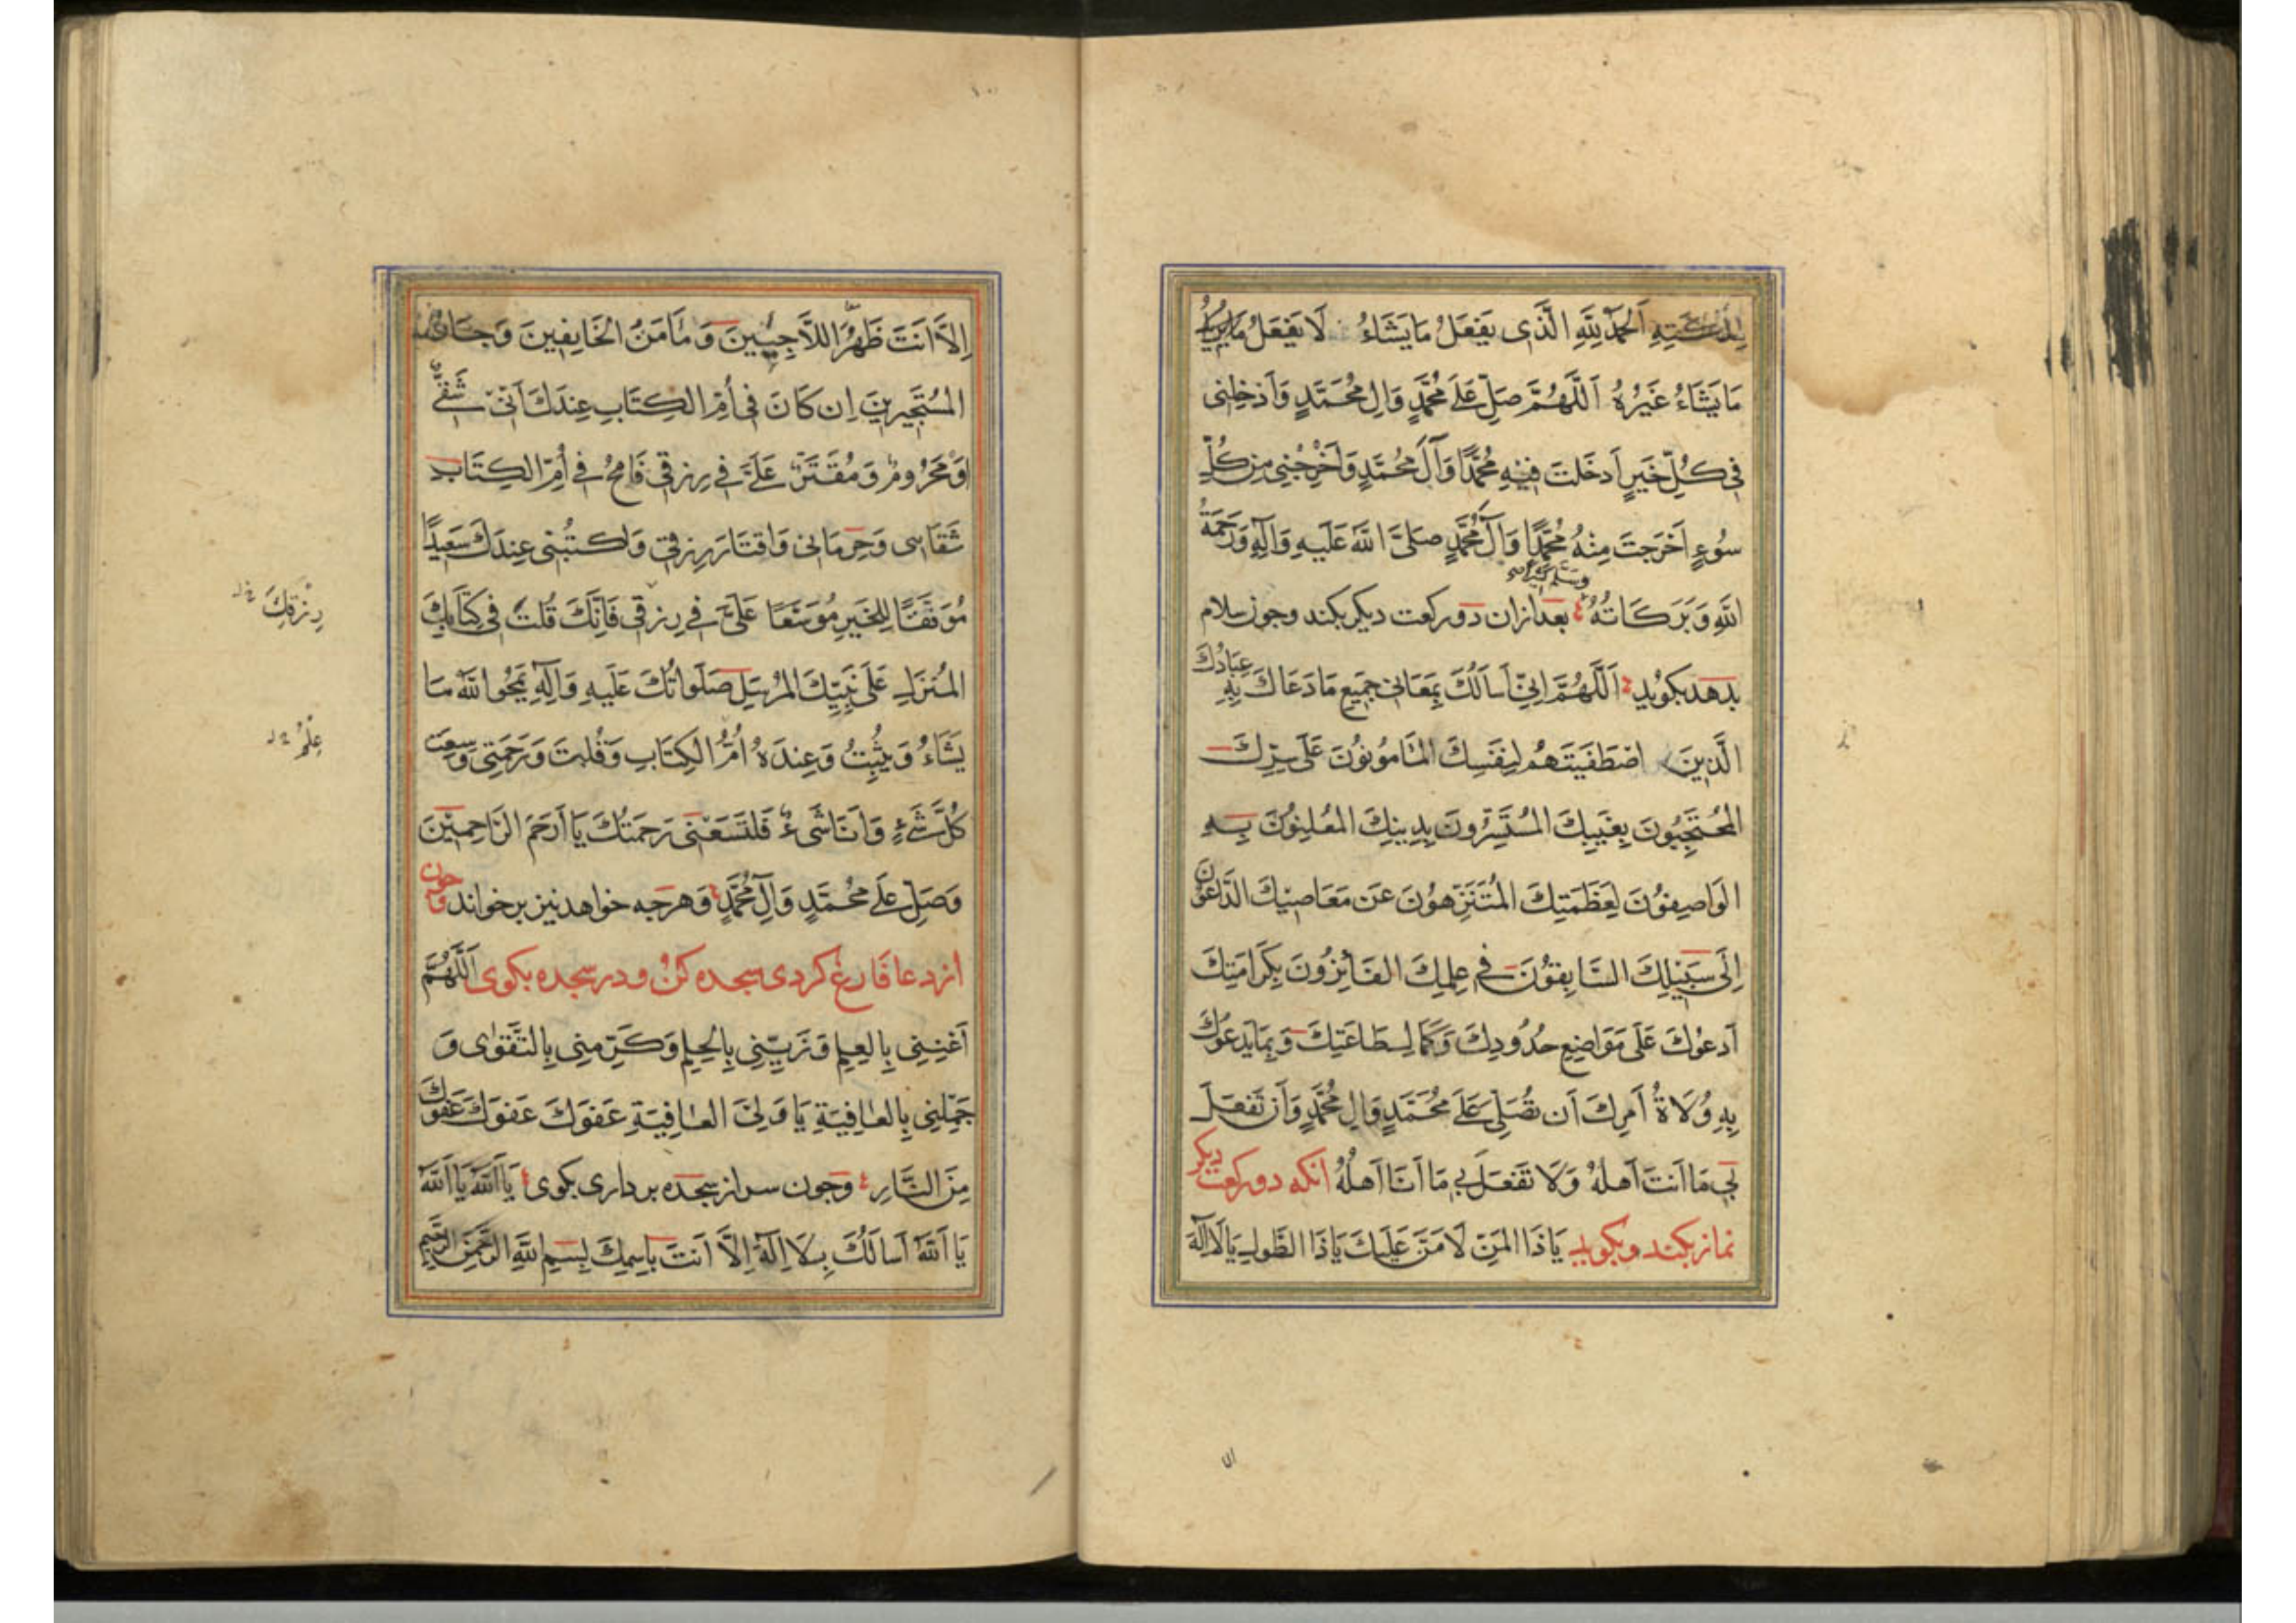 اَلْحَمْدُ لِلّٰهِ الَّذِی یَفْعَلُ مَا یَشَاءُ لَا یَفْعَلُ
مَا یَشَاءُ غَیْرُهُ اَللّٰهُمَّ صَلِّ عَلَی مُحَمَّدٍ وَآلِ مُحَمَّدٍ وَاَدْخِلْنِی
فِی کُلِّ خَیْرٍ اَدْخَلْتَ فِیْهِ مُحَمَّدًا وَآلَ مُحَمَّدٍ وَاَخْرِجْنِی مِنْ کُلِّ
سُوءٍ اَخْرَجْتَ مِنْهُ مُحَمَّدًا وَآلَ مُحَمَّدٍ صَلَّی اللّٰهُ عَلَیْهِ وَآلِهِ وَرَحْمَةُ
وسلم کثیرا
اللّٰهِ وَبَرَکَاتُهُ بعد ازان دو رکعت دیکر بکند وچون سلام
بدهد بکوید اَللّٰهُمَّ اِنِّی اَسْاَلُکَ بِمَعَانِی جَمِیعِ مَا دَعَاکَ بِهِ عِبَادُکَ
الَّذِینَ اصْطَفَیْتَهُمْ لِنَفْسِکَ الْمَاْمُونُونَ عَلَی سِرِّکَ
الْمُحْتَجِبُونَ بِغَیْبِکَ الْمُسْتَسِرُّونَ بِدِینِکَ الْمُعْلِنُونَ بِهِ
الْوَاصِفُونَ لِعَظَمَتِکَ الْمُتَنَزِّهُونَ عَنْ مَعَاصِیْکَ الدَّاعُونَ
اِلَی سَبِیْلِکَ السَّابِقُونَ فِی عِلْمِکَ الْفَائِزُونَ بِکَرَامَتِکَ
اَدْعُوکَ عَلَی مَوَاضِعِ حُدُودِکَ وَکَمَالِ طَاعَتِکَ وَبِمَا یَدْعُوکَ
بِهِ وُلَاةُ اَمْرِکَ اَنْ تُصَلِّیَ عَلَی مُحَمَّدٍ وَآلِ مُحَمَّدٍ وَاَنْ تَفْعَلَ
بِی مَا اَنْتَ اَهْلُهُ وَلَا تَفْعَلْ بِی مَا اَنَا اَهْلُهُ آنکه دو رکعت دیکر
نماز بکند و بکوید یَا ذَا الْمَنِّ لَا مَنَّ عَلَیْکَ یَا ذَا الطَّولِ یَا لَا اِلٰهَ
اِلَّا اَنْتَ ظَهْرُ اللَّاجِیْنَ وَمَأمَنُ الْخَایِفِینَ وَجَارُ
الْمُسْتَجِیرِینَ اِنْ کَانَ فِی اُمِّ الْکِتَابِ عِنْدَکَ اَنِّی شَقِیٌّ
اَوْ مَحْرُومٌ وَمُقَتَّرٌ عَلَیَّ فِی رِزْقِی فَامْحُ فِی اُمِّ الْکِتَابِ
شَقَائی وَحِرْمَانِی وَاقْتَارَ رِزْقِی وَاکْتُبْنِی عِنْدَکَ سَعِیدًا
مُوَفَّقًا لِلْخَیْرِ مُوَسَّعًا عَلَیَّ فِی رِزْقِی فَاِنَّکَ قُلْتَ فِی کِتَابِکَ
رِزْقِکَ
الْمُنْزَلِ عَلَی نَبِیِّکَ الْمُرْسَلِ صَلَوَاتُکَ عَلَیْهِ وَآلِهِ یَمْحُوا اللّٰهُ مَا
یَشَاءُ وَیُثْبِتُ وَعِنْدَهُ اُمُّ الْکِتَابِ وَقُلْتَ وَرَحْمَتِی وَسِعَتْ
کُلَّ شَیْءٍ وَاَنَا شَیْءٌ فَلْتَسَعْنِی رَحْمَتُکَ یَا اَرْحَمَ الرَّاحِمِیْنَ
وَصَلِّ عَلَی مُحَمَّدٍ وَآلِ مُحَمَّدٍ وهرچه خواهد نیز برخواند و چون
از دعا فارغ کردی سجده کن و در سجده بکوی اَللّٰهُمَّ
اَغْنِنِی بِالْعِلْمِ وَزَیِّنِّی بِالْحِلْمِ وَکَرِّمْنِی بِالتَّقْوٰی وَ
جَمِّلْنِی بِالْعَافِیَةِ یَا وَلِیَّ الْعَافِیَةِ عَفْوَکَ عَفْوَکَ عَفْوَکَ
مِنَ النَّارِ وچون سر از سجده برداری بکوی یَا اَللّٰهُ یَا اَللّٰهُ
یَا اَللّٰهُ اَسْاَلُکَ بِلَا اِلٰهَ اِلَّا اَنْتَ بِاسْمِکَ بِسْمِ اللّٰهِ الرَّحْمٰنِ الرَّحِیمِ